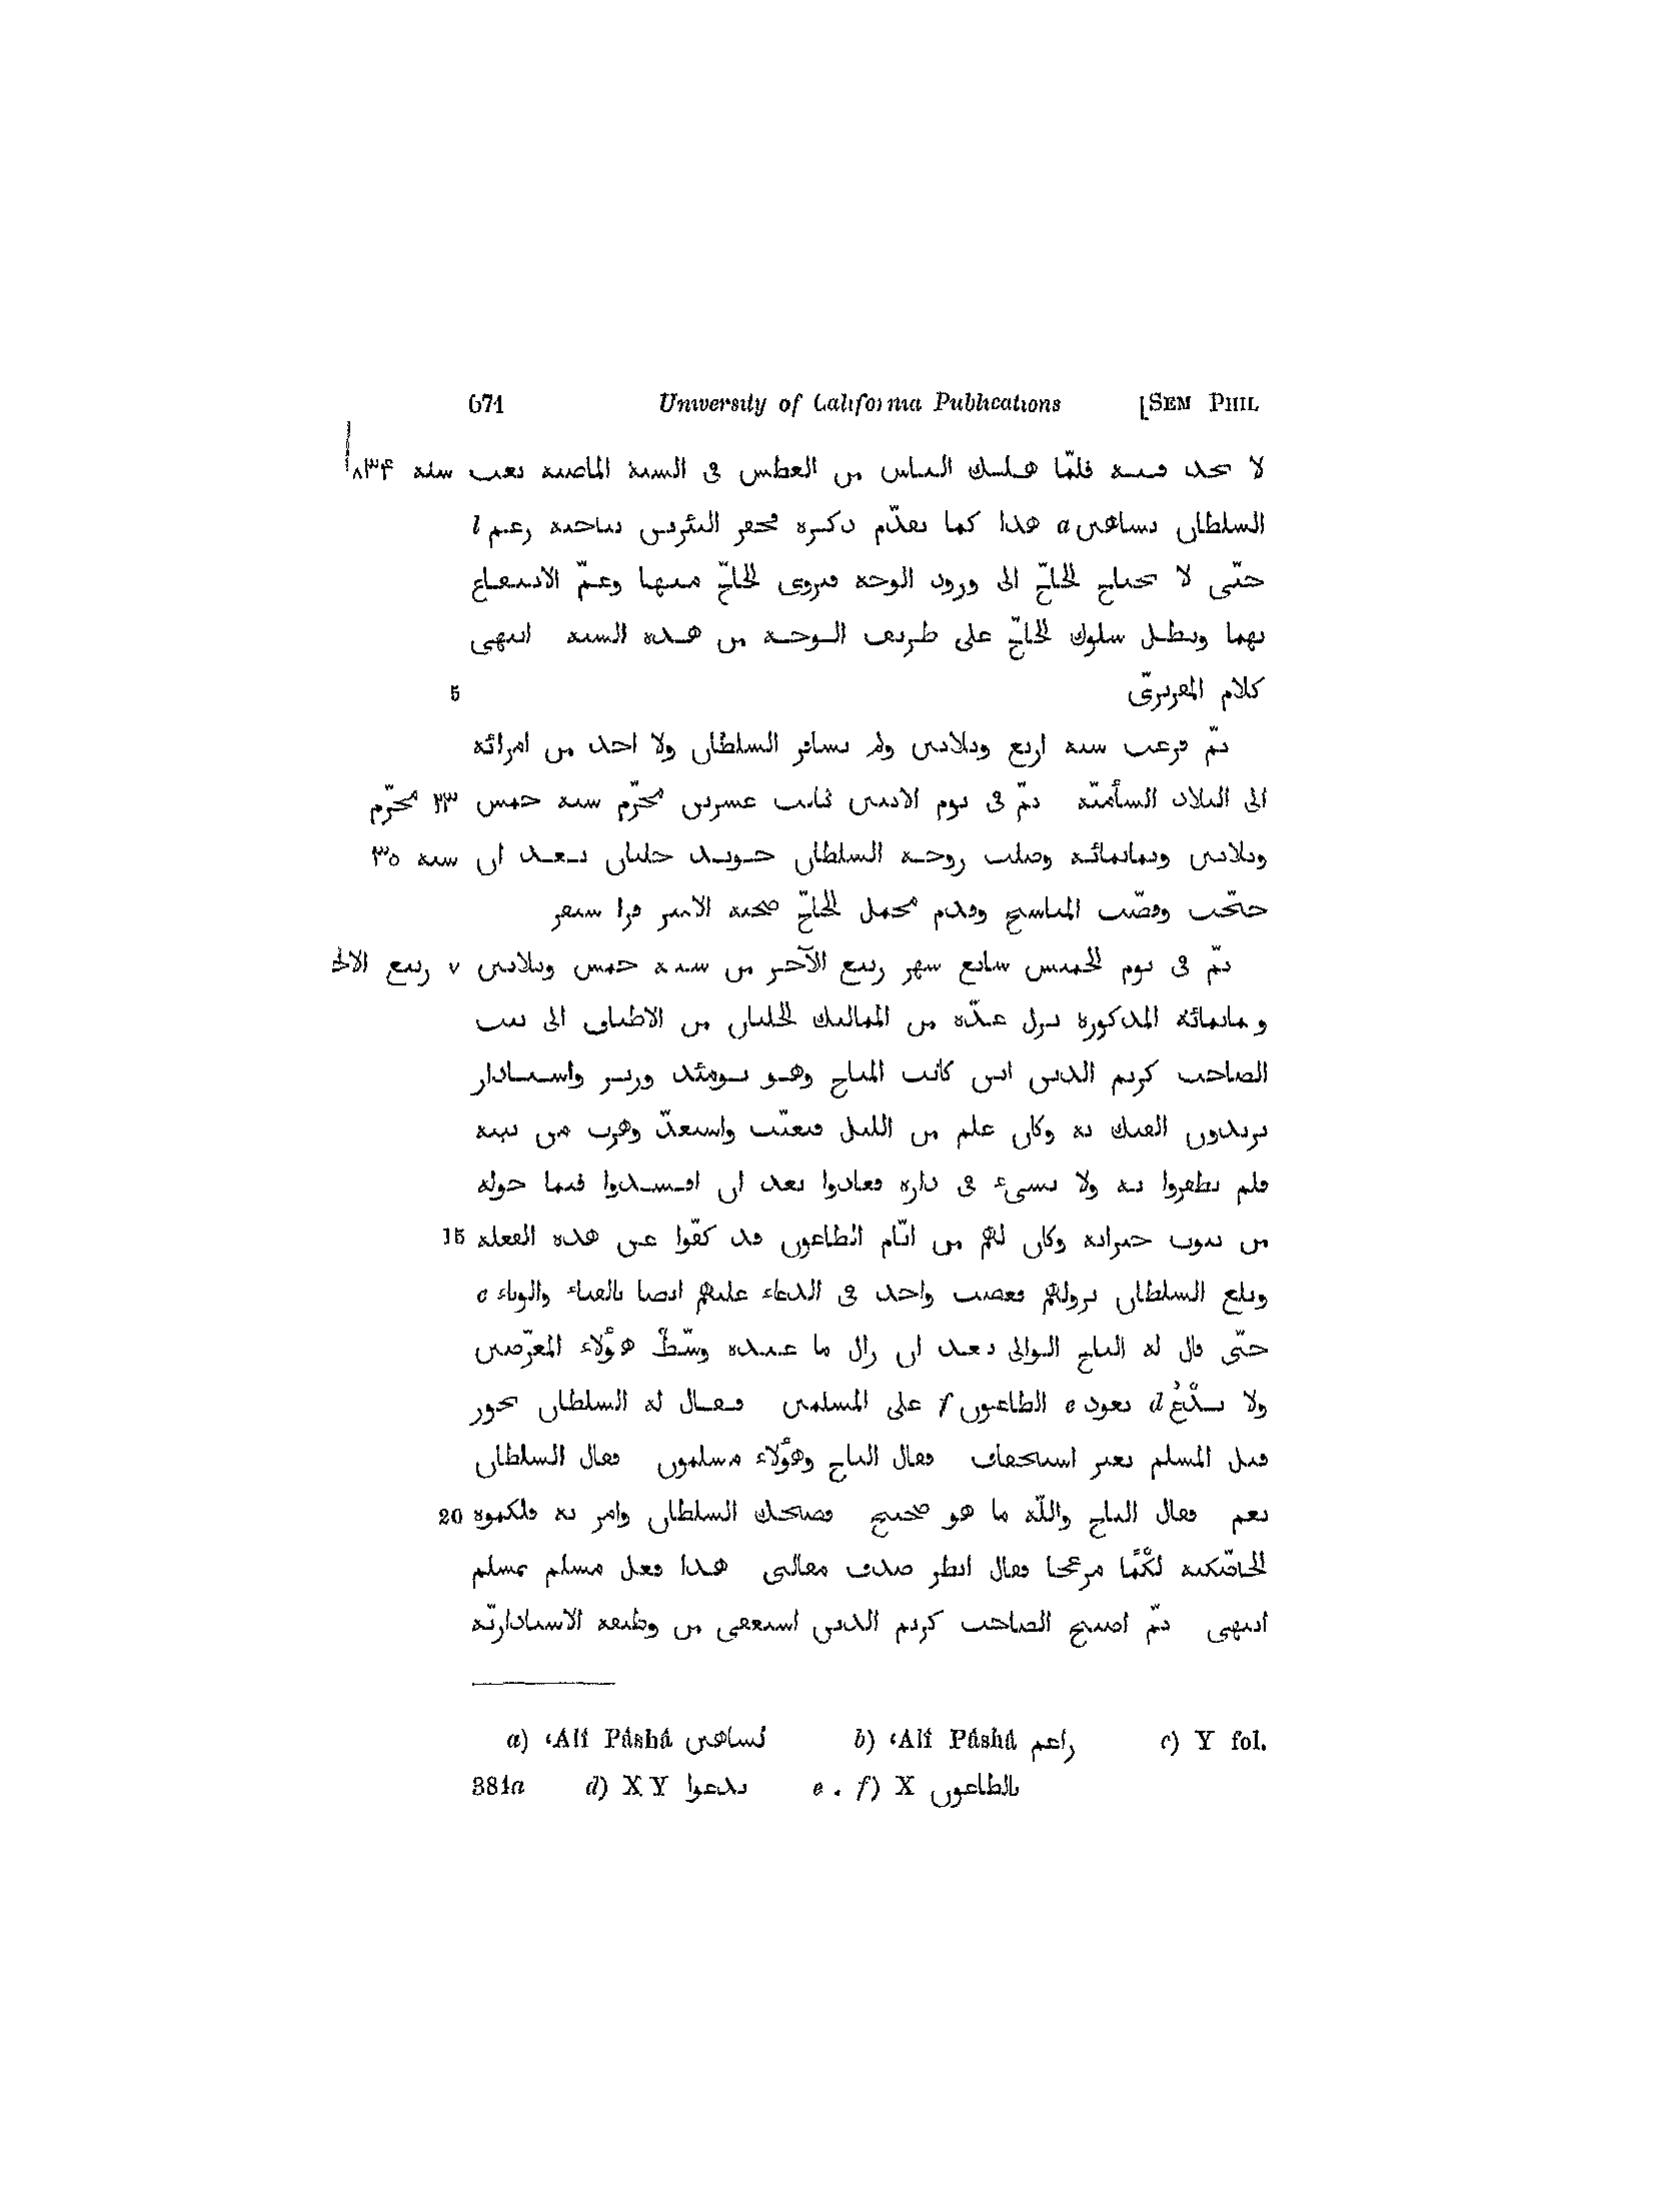 671 University of California Publications [SEM PHIL
لا يجد فيه فلمّا هلك الناس من العطش فى السنة الماضية بعث سنة ٨٣۴
السلطان بشاهين a هذا كما تقدّم ذكره فحفر البئرين بناحية زعم
حتّى لا يحتاج الحاجّ الى ورود الوجه فيروى الحاجّ منهما وعمّ الانتفاع
بهما وبطل سلوك الحاجّ على طريق الوجه من هذه السنة انتهى
كلام المقريزىّ 5
ثمّ فرغت سنة اربع وثلاثين ولم يسافر السلطان ولا احد من امرائه
الى البلاد الشأميّة ثمّ فى يوم الاثنين ثالث عشرين محرّم سنة خمس ٢٣ محرّم
وثلاثين وثمانمائة وصلت زوجة السلطان خوند جلبان بعد ان سنة ٣٥
حجّت وقضّت المناسج وقدم محمل الحاجّ صحبة الامير قرا سنقر
ثمّ فى يوم الخميس سابع شهر ربيع الآخر من سنة خمس وثلاثين ٧ ربيع الاخ
وثمانمائة المذكورة نزل عدّة من المماليك الجلبان من الاطباق الى بيت
الصاحب كريم الدين ابن كاتب المناخ وهو يومئذ وزير واستادار
يريدون الفتك به وكان علم من الليل فتغيّب واستعدّ وهرب من بيته
فلم يظفروا به ولا بشىء فى داره فعادوا بعد ان افسدوا فيما حوله
من بيوت جيرانه وكان لهم من ايّام الطاعون قد كفّوا عن هذه الفعلة 15
وبلغ السلطان نزولهم فغضب واخذ فى الدعاء عليهم ايضا بالفناء والوباء c
حتّى قال له التاج الوالى بعد ان زال ما عنده وسّطْ هؤلاء المعرّصين
ولا تدّعُ d بعود e الطاعون f على المسلمين فقال له السلطان يجوز
قتل المسلم بغير استحقاق فقال التاج وهؤلاء مسلمون فقال السلطان
نعم فقال التاج واللّه ما هو صحيح فضحك السلطان وامر به فلكموه 20
الخاصّكية لكْمًا مزعجا فقال انظر صدق مقالتى هذا فعل مسلم بمسلم
انتهى ثمّ اصبح الصاحب كريم الدين استعفى من وظيفة الاستاداريّة
a) ʿAlî Pâshâ لشاهين b) ʿAlî Pâshâ زاعم c) Y fol.
381a d) X Y تدعوا e . f) X بالطاعون